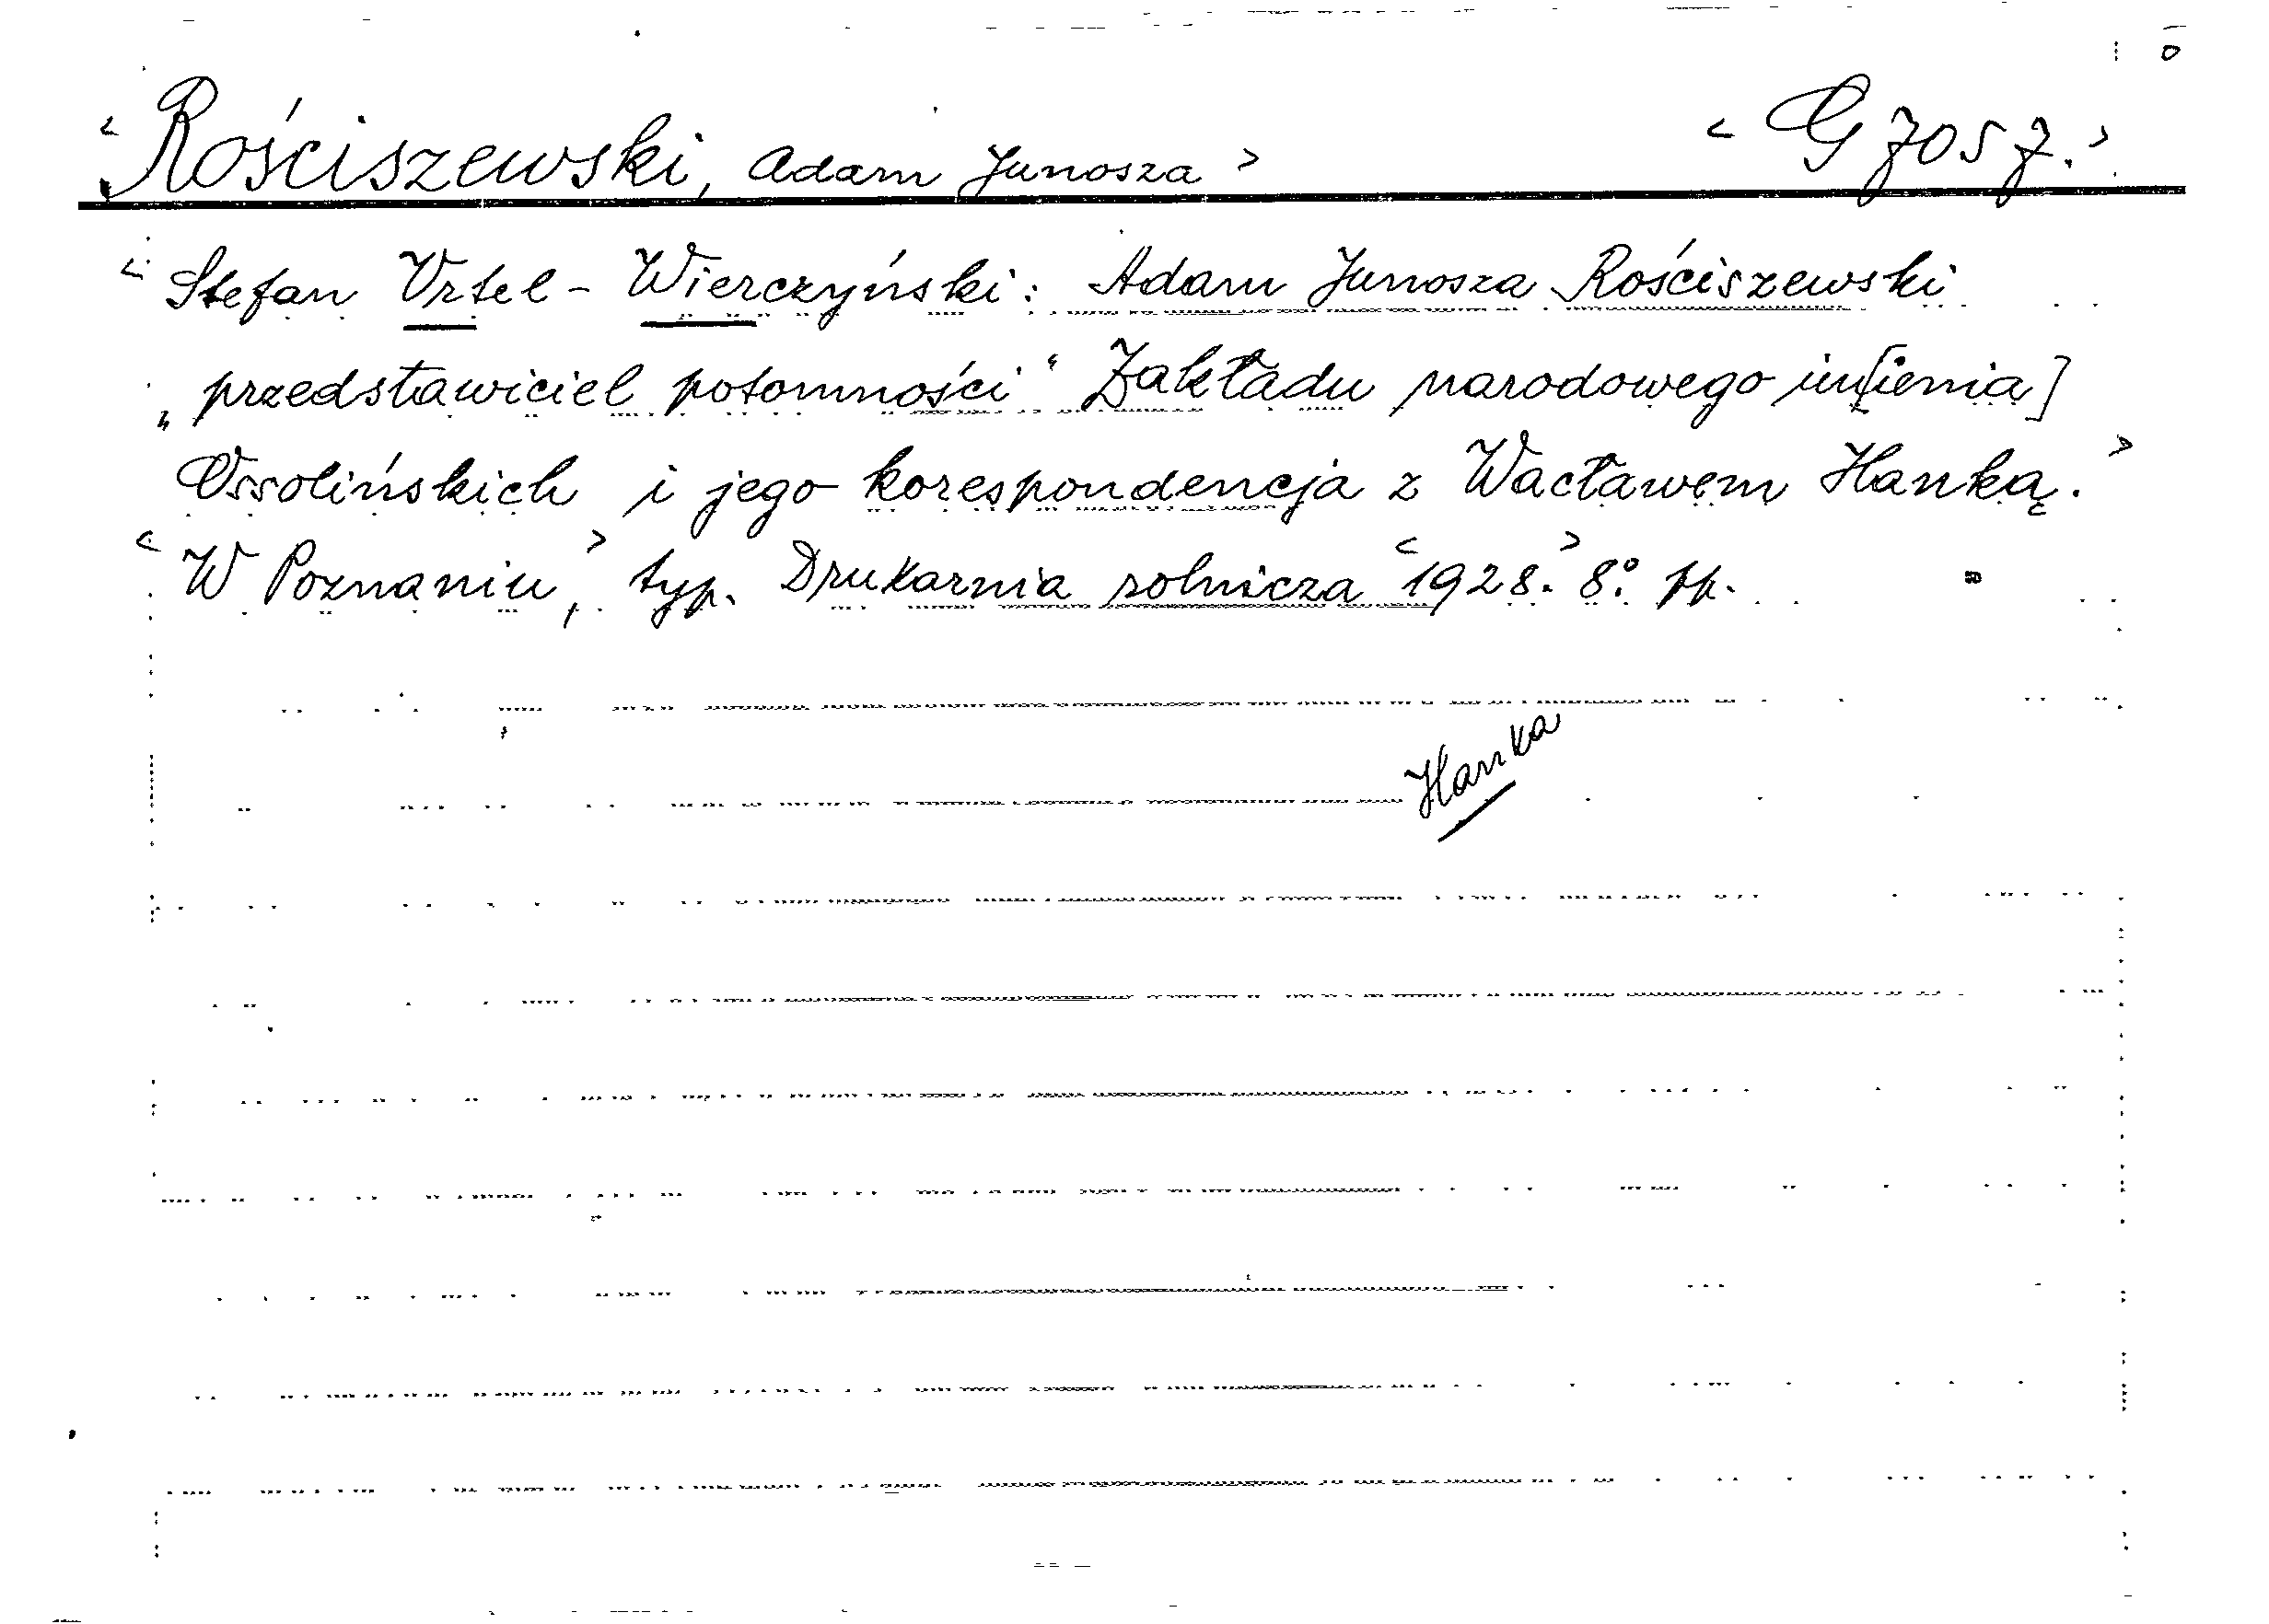 <Rościszewski, Adam Junosza> <G 7057.>
<Stefan Vrtel-Wierczyński: Adam Junosza Rościszewski
„przedstawiciel potomności“ Zakładu narodowego im[ienia]
Ossolińskich i jego korespondencja z Wacławem Hanką.>
<W Poznaniu,> typ. Drukarnia rolnicza <1928.> 8° pp.
Hanka